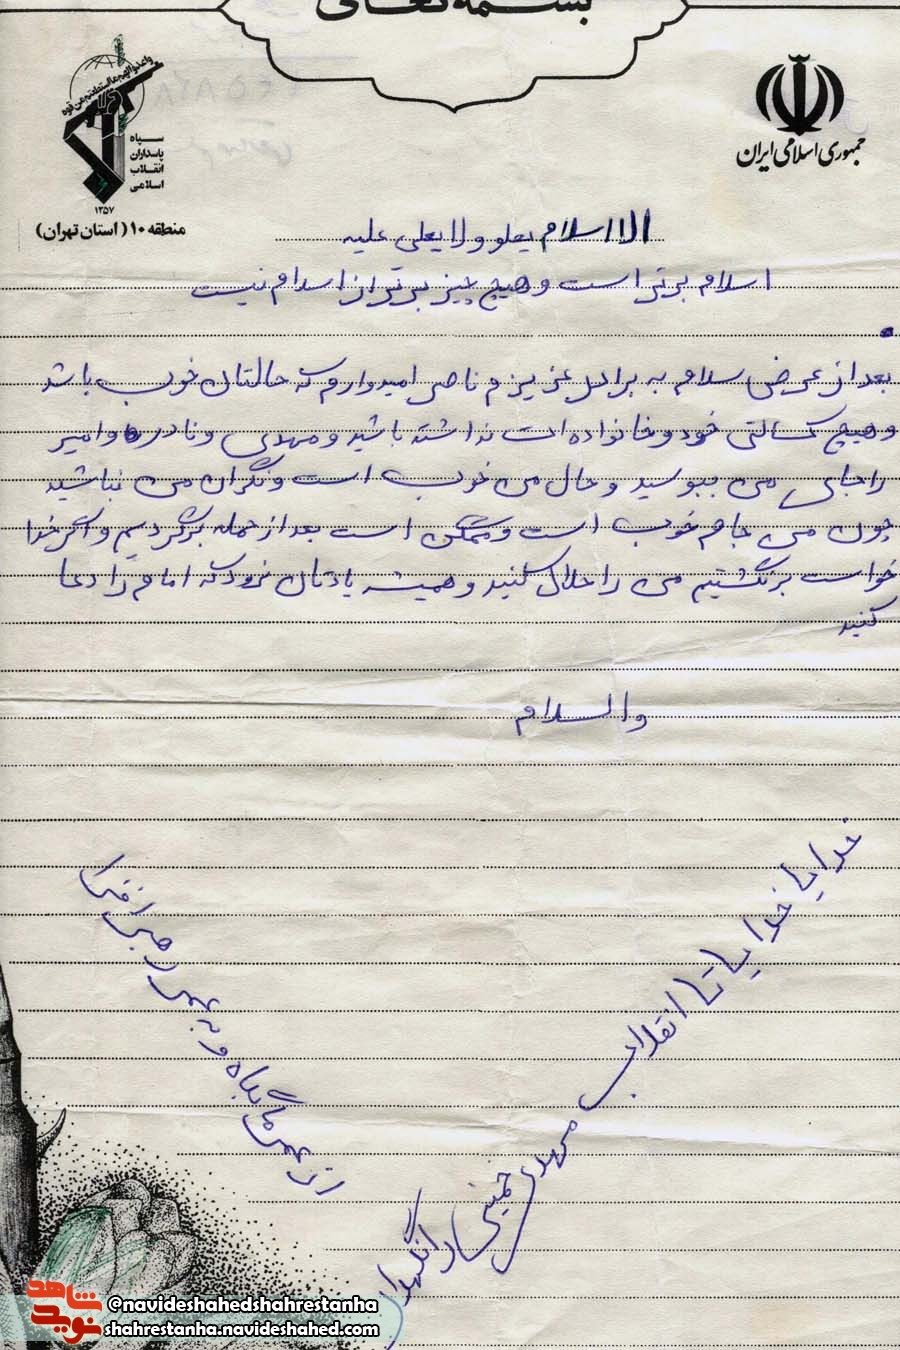 بسمه تعالی
جمهوری اسلامی ایران
سپاه
پاسداران
انقلاب
اسلامی
۱۳۵۷
منطقه ۱۰ (استان تهران)
الااسلام یعلو ولا یعلی علیه
اسلام برتر است و هیچ چیز برتر از اسلام نیست
بعد از عرض سلام به برادر عزیزم ناصر امیدوارم که حالتان خوب باشد
و هیچ کسالتی خود و خانواده ات نداشته باشید و مهدی و نادره و امیر
را جای من ببوسید و حال من خوب است و نگران من نباشید
چون من جام خوب است و ممکن است بعد از حمله برگردیم و اگر خدا
خواست برنگشتیم من را حلال کنید و همیشه یادتان نرود که امام را دعا
کنید
والسلام
خدایا خدایا تا انقلاب مهدی خمینی را نگهدار
از عمر ما بکاه و به عمر رهبر افزا
شاهد
نوید
@navideshahedshahrestanha
shahrestanha.navideshahed.com